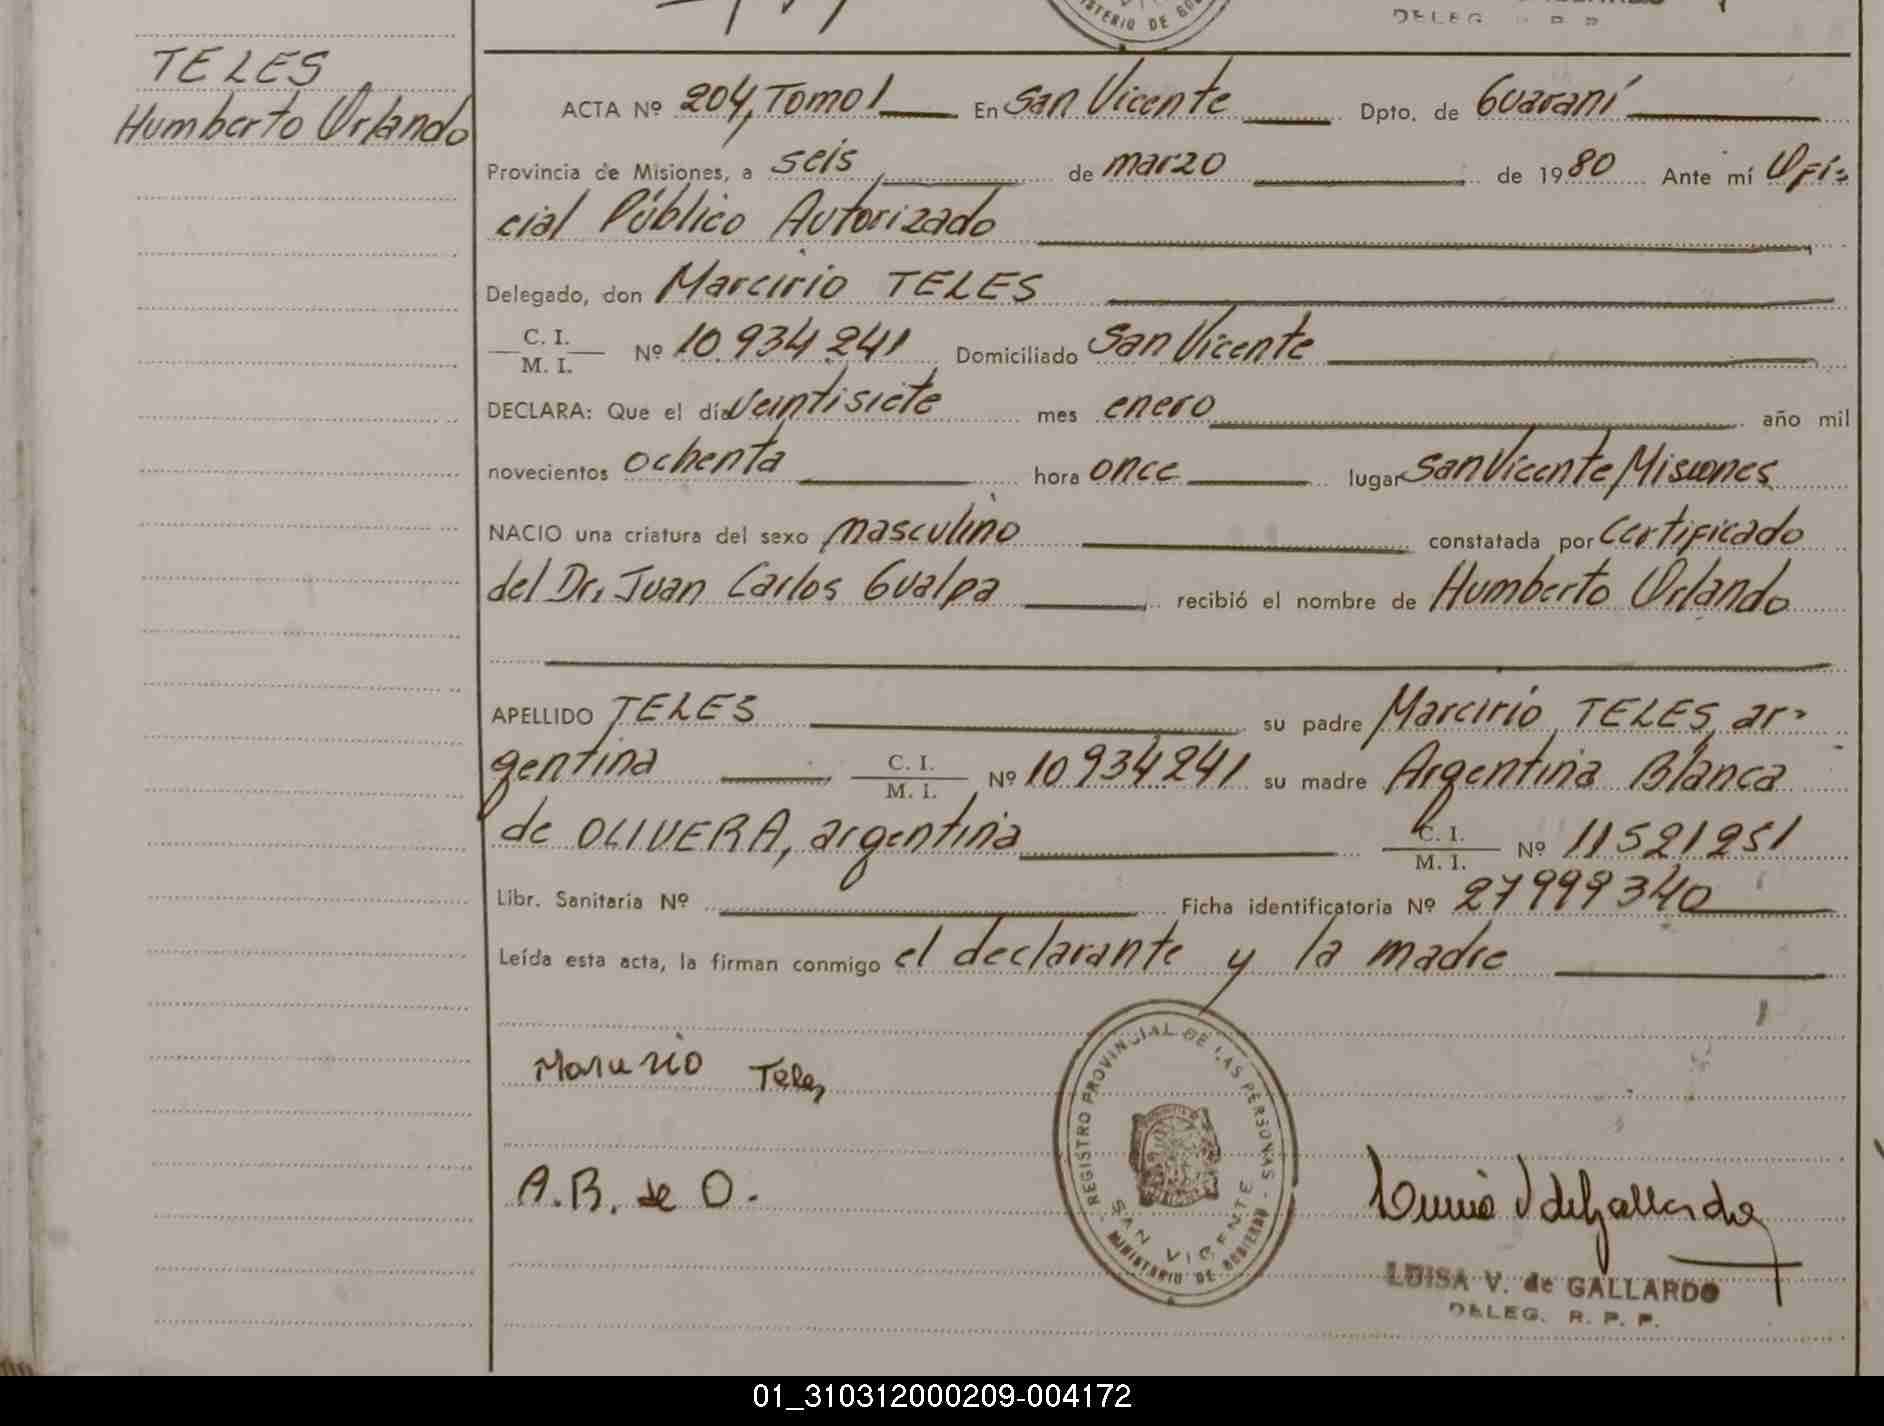 DELEG. R. P. P.
MINISTERIO DE GOB
TELES
Humberto Orlando
ACTA Nº 204, Tomo I En San Vicente Dpto. de Guaraní
Provincia de Misiones, a seis de marzo de 1980 Ante mí Ofi-
cial Público Autorizado
Delegado, don Marcirio TELES
C. I.
M. I. Nº 10.934.241 Domiciliado San Vicente
DECLARA: Que el día veintisiete mes enero año mil
novecientos ochenta hora once lugar San Vicente, Misiones
NACIO una criatura del sexo masculino constatada por certificado
del Dr. Juan Carlos Gualpa recibió el nombre de Humberto Orlando
APELLIDO TELES su padre Marcirio TELES, ar-
gentina C. I. M. I. Nº 10934241 su madre Argentina Blanca
de OLIVERA, argentina C. I. M. I. Nº 11521251
Libr. Sanitaria Nº Ficha identificatoria Nº 27999340
Leída esta acta, la firman conmigo el declarante y la madre
Marcirio Teles
A.B. de O.
REGISTRO PROVINCIAL DE LAS PERSONAS -
SAN VICENTE
MINISTERIO DE GOBIERNO
LUISA V. de GALLARDO
DELEG. R. P. P.
01_310312000209-004172